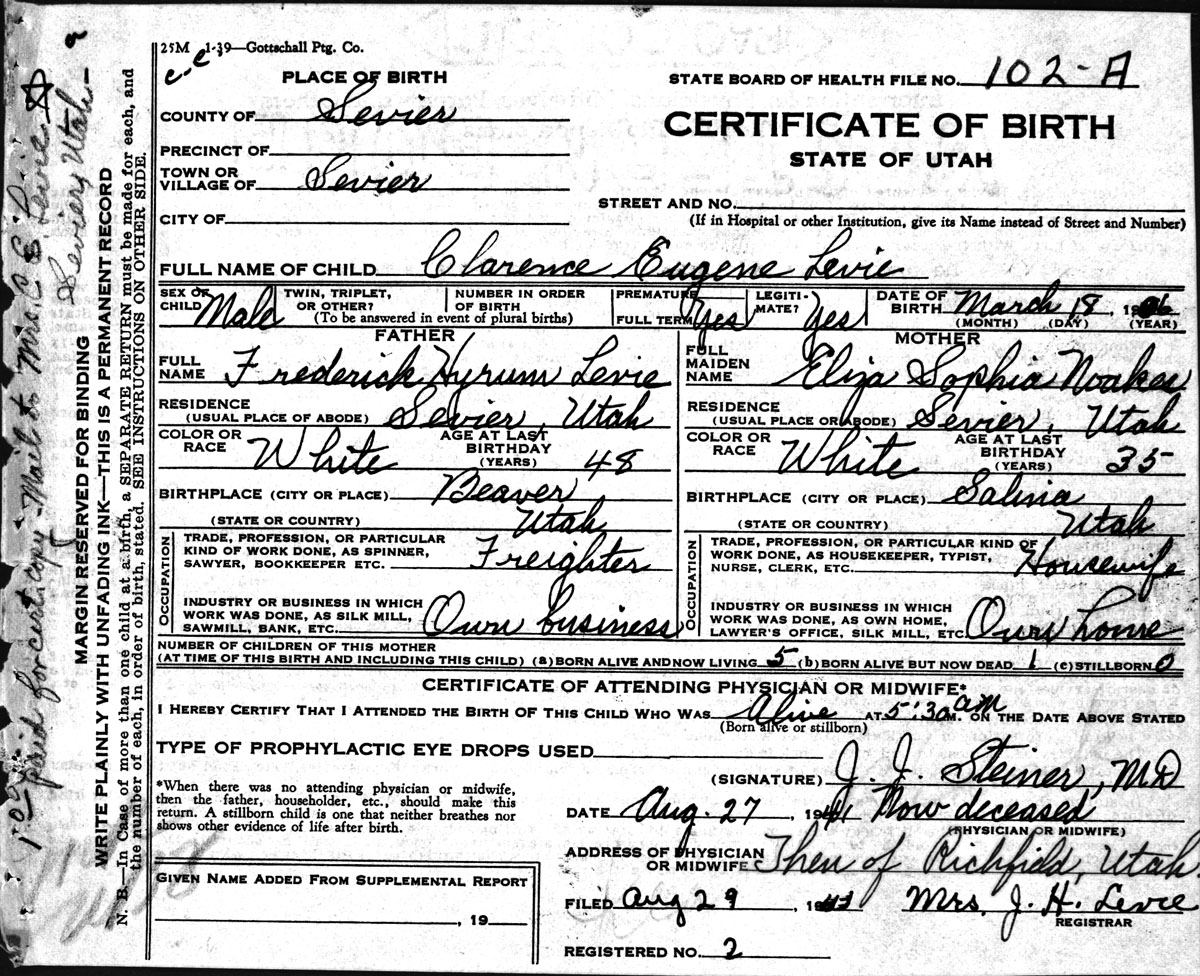 25M 1-39—Gottschall Ptg. Co.
c-c
PLACE OF BIRTH
STATE BOARD OF HEALTH FILE NO. 102-A
COUNTY OF Sevier
CERTIFICATE OF BIRTH
PRECINCT OF
STATE OF UTAH
TOWN OR VILLAGE OF Sevier
STREET AND NO.
CITY OF
(If in Hospital or other Institution, give its Name instead of Street and Number)
FULL NAME OF CHILD Clarence Eugene Levie
SEX OF CHILD Male TWIN, TRIPLET, OR OTHER? NUMBER IN ORDER OF BIRTH (To be answered in event of plural births) PREMATURE FULL TERM Yes LEGITI-MATE? Yes DATE OF BIRTH March 18, (MONTH) (DAY) (YEAR)
FATHER
MOTHER
FULL NAME Frederick Hyrum Levie
FULL MAIDEN NAME Eliza Sophia Noakes
RESIDENCE (USUAL PLACE OF ABODE) Sevier, Utah
RESIDENCE (USUAL PLACE OR ABODE) Sevier, Utah
COLOR OR RACE White AGE AT LAST BIRTHDAY (YEARS) 48
COLOR OR RACE White AGE AT LAST BIRTHDAY (YEARS) 35
BIRTHPLACE (CITY OR PLACE) Beaver
(STATE OR COUNTRY) Utah
BIRTHPLACE (CITY OR PLACE) Salina
(STATE OR COUNTRY) Utah
OCCUPATION
TRADE, PROFESSION, OR PARTICULAR
KIND OF WORK DONE, AS SPINNER,
SAWYER, BOOKKEEPER ETC. Freighter
INDUSTRY OR BUSINESS IN WHICH
WORK WAS DONE, AS SILK MILL,
SAWMILL, BANK, ETC. Own business
OCCUPATION
TRADE, PROFESSION, OR PARTICULAR KIND OF
WORK DONE, AS HOUSEKEEPER, TYPIST,
NURSE, CLERK, ETC. Housewife
INDUSTRY OR BUSINESS IN WHICH
WORK WAS DONE, AS OWN HOME,
LAWYER'S OFFICE, SILK MILL, ETC. Own home
NUMBER OF CHILDREN OF THIS MOTHER
(AT TIME OF THIS BIRTH AND INCLUDING THIS CHILD) (a) BORN ALIVE AND NOW LIVING 5 (b) BORN ALIVE BUT NOW DEAD 1 (c) STILLBORN 0
CERTIFICATE OF ATTENDING PHYSICIAN OR MIDWIFE*
I HEREBY CERTIFY THAT I ATTENDED THE BIRTH OF THIS CHILD WHO WAS Alive AT 5:30 AM M. ON THE DATE ABOVE STATED
(Born alive or stillborn)
TYPE OF PROPHYLACTIC EYE DROPS USED
(SIGNATURE) J. J. Steiner, MD
*When there was no attending physician or midwife,
then the father, householder, etc., should make this
return. A stillborn child is one that neither breathes nor
shows other evidence of life after birth.
DATE Aug. 27, 1941 Now deceased
(PHYSICIAN OR MIDWIFE)
ADDRESS OF PHYSICIAN OR MIDWIFE Then of Richfield, Utah.
GIVEN NAME ADDED FROM SUPPLEMENTAL REPORT
, 19
FILED Aug 29, 19 Mrs. J. H. Levie
REGISTRAR
REGISTERED NO. 2
MARGIN RESERVED FOR BINDING
WRITE PLAINLY WITH UNFADING INK—THIS IS A PERMANENT RECORD
N. B.—In Case of more than one child at a birth, a SEPARATE RETURN must be made for each, and
the number of each, in order of birth, stated. SEE INSTRUCTIONS ON OTHER SIDE.
paid for cert. copy - Mail to Mrs. C E Levie
Sevier, Utah